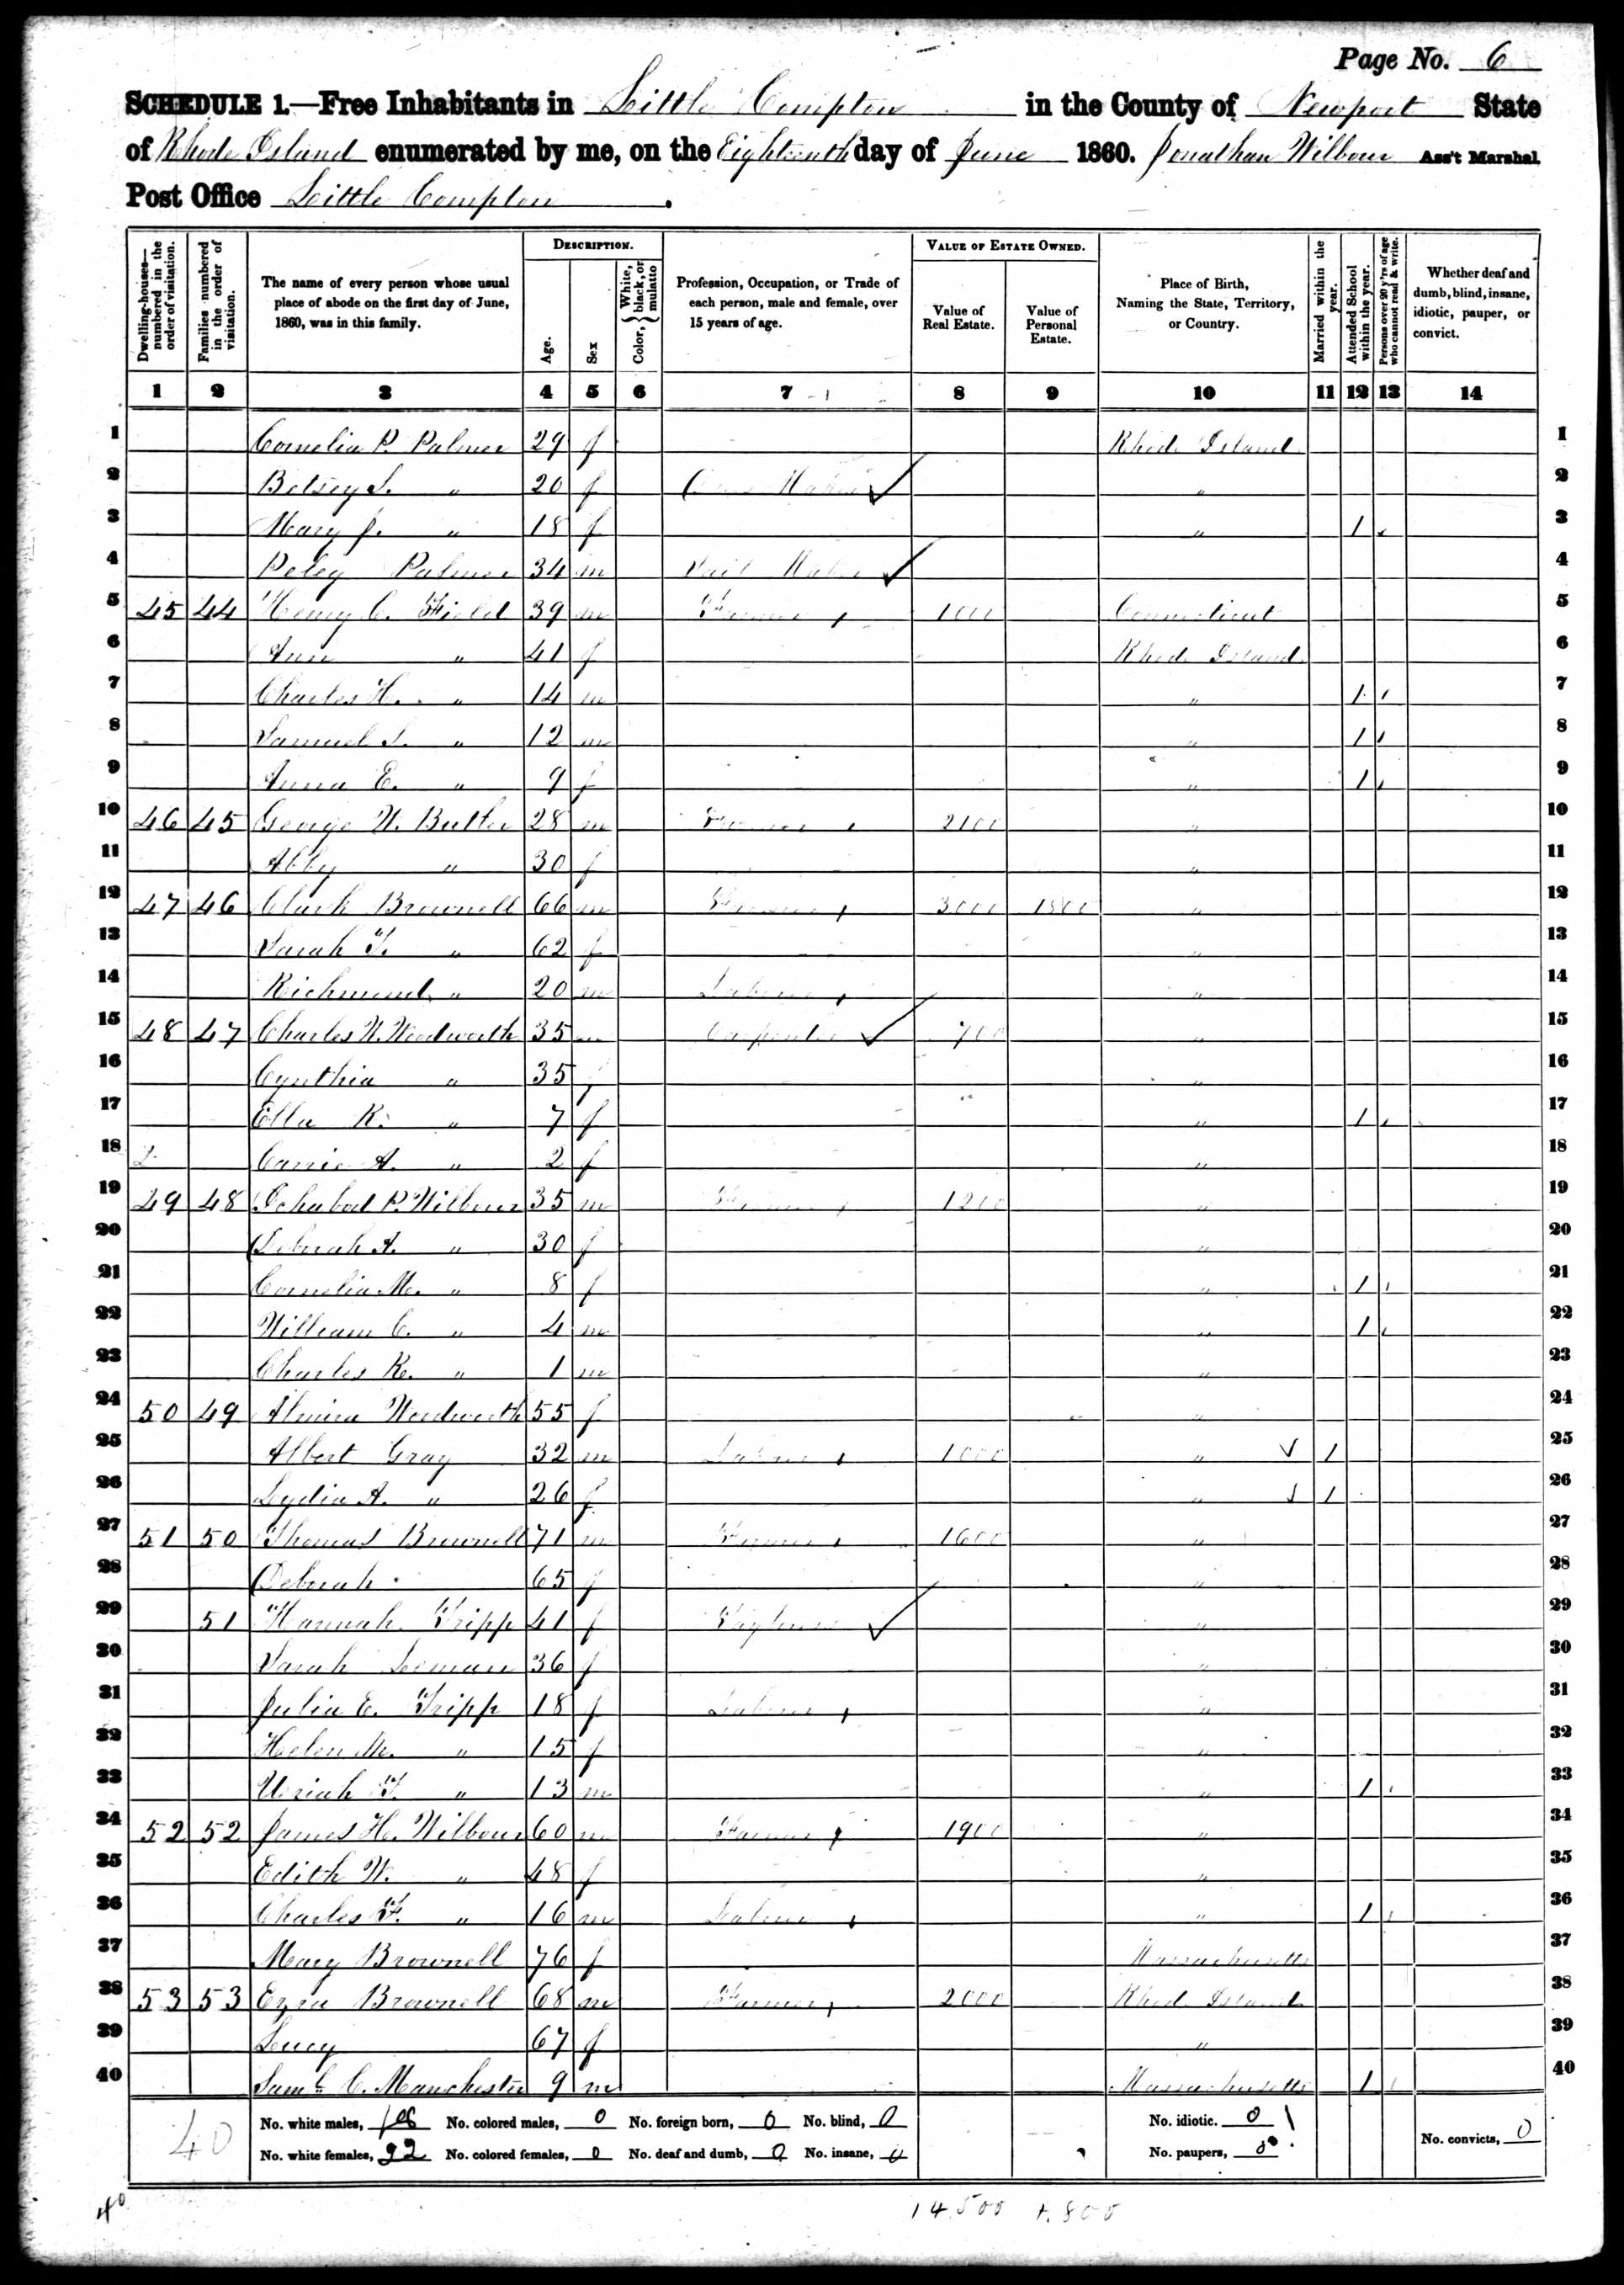 Page No. 6
SCHEDULE 1.—Free Inhabitants in Little Compton in the County of Newport State
of Rhode Island enumerated by me, on the Eighteenth day of June 1860. Jonathan Wilbour Ass't Marshal.
Post Office Little Compton .
Dwelling-houses—numbered in the order of visitation. Families numbered in the order of visitation. The name of every person whose usual place of abode on the first day of June, 1860, was in this family. DESCRIPTION. Age. Sex Color, White, black, or mulatto Profession, Occupation, or Trade of each person, male and female, over 15 years of age. VALUE OF ESTATE OWNED. Value of Real Estate. Value of Personal Estate. Place of Birth, Naming the State, Territory, or Country. Married within the year. Attended School within the year. Persons over 20 y'rs of age who cannot read & write. Whether deaf and dumb, blind, insane, idiotic, pauper, or convict.
1 2 3 4 5 6 7 8 9 10 11 12 13 14
1 Cornelia P. Palmer 29 f Rhode Island 1
2 Betsey S. " 20 f " 2
3 Mary J. " 18 f " 1 3
4 Peleg Palmer 34 m Sail Maker 4
5 45 44 Henry C. Field 39 m Farmer 1000 Connecticut 5
6 Ann " 41 f Rhode Island 6
7 Charles H. " 14 m " 1 7
8 Samuel S. " 12 m " 1 8
9 Anna E. " 9 f " 1 9
10 46 45 George W. Butler 28 m Farmer 2100 " 10
11 Abby " 30 f " 11
12 47 46 Clark Brownell 66 m Farmer 3000 1800 " 12
13 Sarah T. " 62 f " 13
14 Richmond " 20 m Laborer " 14
15 48 47 Charles W. Woodworth 35 m Carpenter 700 " 15
16 Cynthia " 35 f " 16
17 Ella R. " 7 f " 1 17
18 Carrie A. " 2 f " 18
19 49 48 Ichabod P. Wilbour 35 m Farmer 1200 " 19
20 Deborah A. " 30 f " 20
21 Cornelia M. " 8 f " 1 21
22 William C. " 4 m " 1 22
23 Charles R. " 1 m " 23
24 50 49 Almira Woodworth 55 f " 24
25 Albert Gray 32 m Laborer 1000 " 1 25
26 Lydia A. " 26 f " 1 26
27 51 50 Thomas Brownell 71 m Farmer 1600 " 27
28 Deborah 65 f " 28
29 51 Hannah Tripp 41 f " 29
30 Sarah Seeman 36 f " 30
31 Julia E. Tripp 18 f Laborer " 31
32 Helen M. " 15 f " 32
33 Uriah T. " 13 m " 1 33
34 52 52 James H. Wilbour 60 m Farmer 1900 " 34
35 Edith W. " 48 f " 35
36 Charles F. " 16 m Laborer " 1 36
37 Mary Brownell 76 f Massachusetts 37
38 53 53 Ezra Brownell 68 m Farmer 2000 Rhode Island 38
39 Lucy 67 f " 39
40 Saml C. Manchester 9 m Massachusetts 1 40
40 No. white males, No. colored males, 0 No. foreign born, 0 No. blind, 0 No. idiotic. 0
No. white females, 22 No. colored females, 0 No. deaf and dumb, 0 No. insane, 0 No. paupers, 0 No. convicts, 0
40 14,500 1.800